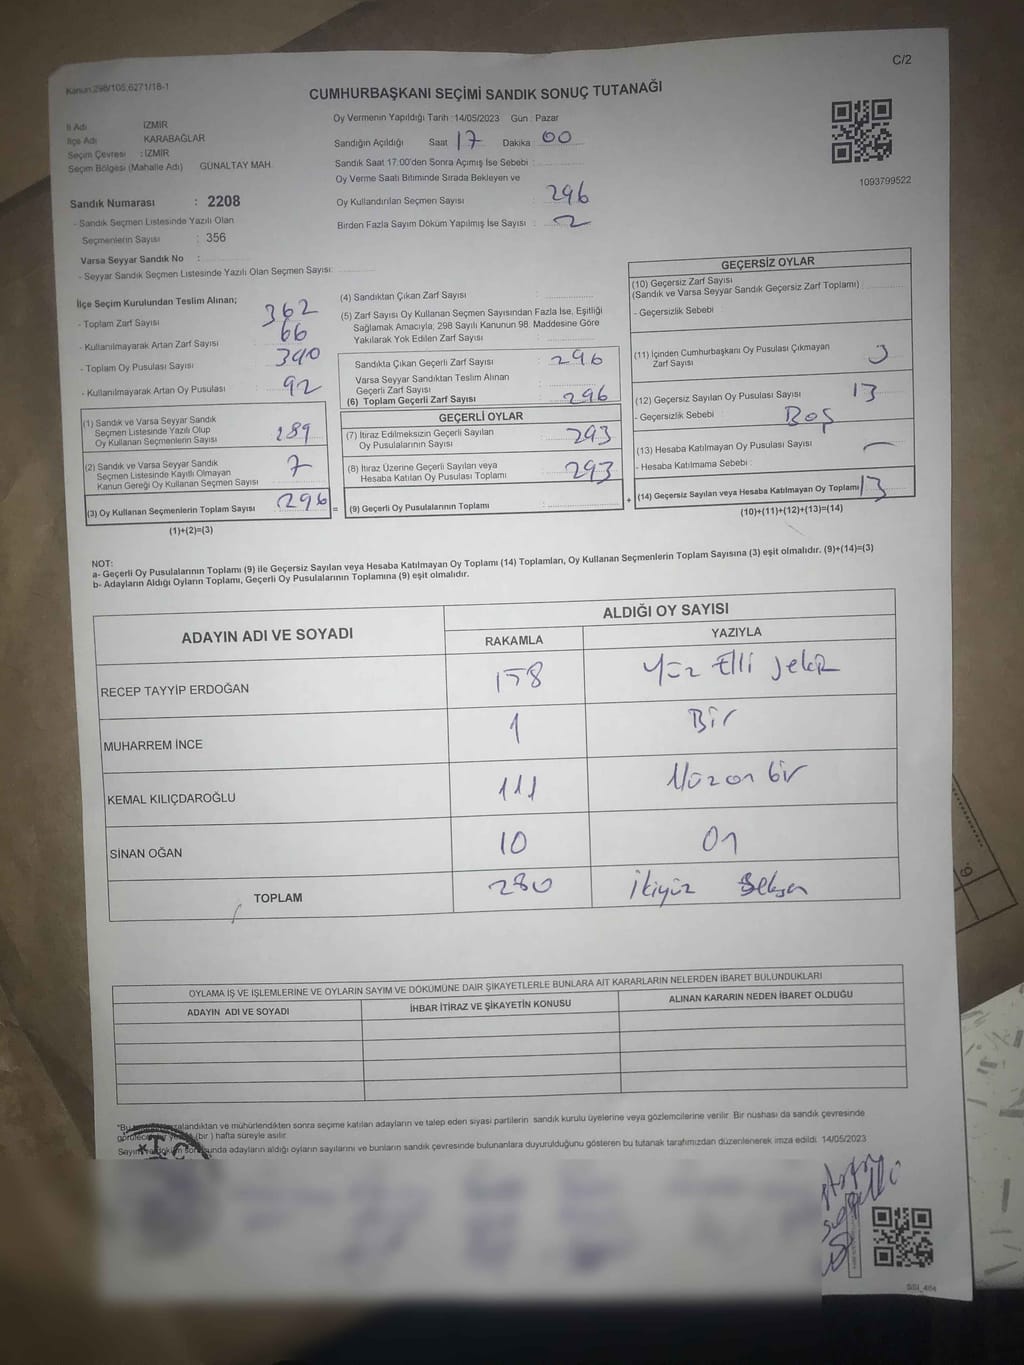 C/2
Kanun 298/105,6271/18-1
CUMHURBAŞKANI SEÇİMİ SANDIK SONUÇ TUTANAĞI
İl Adı İZMİR
İlçe Adı KARABAĞLAR
Seçim Çevresi : İZMİR
Seçim Bölgesi (Mahalle Adı) GÜNALTAY MAH.
Sandık Numarası : 2208
- Sandık Seçmen Listesinde Yazılı Olan
Seçmenlerin Sayısı : 356
Varsa Seyyar Sandık No :
- Seyyar Sandık Seçmen Listesinde Yazılı Olan Seçmen Sayısı:
Oy Vermenin Yapıldığı Tarih :14/05/2023 Gün : Pazar
Sandığın Açıldığı Saat 17 Dakika 00
Sandık Saat 17.00'den Sonra Açımış İse Sebebi :
Oy Verme Saati Bitiminde Sırada Bekleyen ve
Oy Kullandırılan Seçmen Sayısı : 296
Birden Fazla Sayım Döküm Yapılmış İse Sayısı : 2
1093799522
İlçe Seçim Kurulundan Teslim Alınan;
- Toplam Zarf Sayısı : 362
- Kullanılmayarak Artan Zarf Sayısı : 66
- Toplam Oy Pusulası Sayısı : 390
- Kullanılmayarak Artan Oy Pusulası : 92
(1) Sandık ve Varsa Seyyar Sandık
Seçmen Listesinde Yazılı Olup
Oy Kullanan Seçmenlerin Sayısı 289
(2) Sandık ve Varsa Seyyar Sandık
Seçmen Listesinde Kayıtlı Olmayan
Kanun Gereği Oy Kullanan Seçmen Sayısı 7
(3) Oy Kullanan Seçmenlerin Toplam Sayısı 296 =
(1)+(2)=(3)
(4) Sandıktan Çıkan Zarf Sayısı :
(5) Zarf Sayısı Oy Kullanan Seçmen Sayısından Fazla İse, Eşitliği
Sağlamak Amacıyla; 298 Sayılı Kanunun 98. Maddesine Göre
Yakılarak Yok Edilen Zarf Sayısı :
Sandıkta Çıkan Geçerli Zarf Sayısı : 296
Varsa Seyyar Sandıktan Teslim Alınan
Geçerli Zarf Sayısı :
(6) Toplam Geçerli Zarf Sayısı : 296
GEÇERLİ OYLAR
(7) İtiraz Edilmeksizin Geçerli Sayılan
Oy Pusulalarının Sayısı : 293
(8) İtiraz Üzerine Geçerli Sayılan veya
Hesaba Katılan Oy Pusulası Toplamı : 293
(9) Geçerli Oy Pusulalarının Toplamı : +
GEÇERSİZ OYLAR
(10) Geçersiz Zarf Sayısı
(Sandık ve Varsa Seyyar Sandık Geçersiz Zarf Toplamı) :
- Geçersizlik Sebebi :
(11) İçinden Cumhurbaşkanı Oy Pusulası Çıkmayan
Zarf Sayısı : 3
(12) Geçersiz Sayılan Oy Pusulası Sayısı : 13
- Geçersizlik Sebebi : Boş
(13) Hesaba Katılmayan Oy Pusulası Sayısı : –
- Hesaba Katılmama Sebebi :
(14) Geçersiz Sayılan veya Hesaba Katılmayan Oy Toplamı : 13
(10)+(11)+(12)+(13)=(14)
NOT:
a- Geçerli Oy Pusulalarının Toplamı (9) ile Geçersiz Sayılan veya Hesaba Katılmayan Oy Toplamı (14) Toplamları, Oy Kullanan Seçmenlerin Toplam Sayısına (3) eşit olmalıdır. (9)+(14)=(3)
b- Adayların Aldığı Oyların Toplamı, Geçerli Oy Pusulalarının Toplamına (9) eşit olmalıdır.
ADAYIN ADI VE SOYADI ALDIĞI OY SAYISI
RAKAMLA YAZIYLA
RECEP TAYYİP ERDOĞAN 158 Yüz Elli sekiz
MUHARREM İNCE 1 Bir
KEMAL KILIÇDAROĞLU 111 Yüz on bir
SİNAN OĞAN 10 On
TOPLAM 280 İkiyüz Seksen
OYLAMA İŞ VE İŞLEMLERİNE VE OYLARIN SAYIM VE DÖKÜMÜNE DAİR ŞİKAYETLERLE BUNLARA AİT KARARLARIN NELERDEN İBARET BULUNDUKLARI
ADAYIN ADI VE SOYADI İHBAR İTİRAZ VE ŞİKAYETİN KONUSU ALINAN KARARIN NEDEN İBARET OLDUĞU
*Bu imzalandıktan ve mühürlendikten sonra seçime katılan adayların ve talep eden siyasi partilerin sandık kurulu üyelerine veya gözlemcilerine verilir. Bir nüshası da sandık çevresinde
(bir) hafta süreyle asılır.
Sayım ve döküm sonunda adayların aldığı oyların sayılarını ve bunların sandık çevresinde bulunanlara duyurulduğunu gösteren bu tutanak tarafımızdan düzenlenerek imza edildi. 14/05/2023